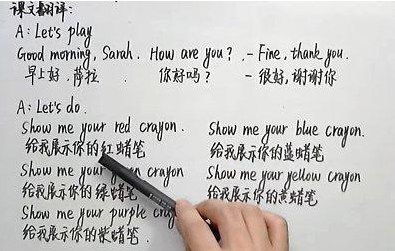 课文翻译:
A: Let's play
Good morning, Sarah. How are you? - Fine, thank you.
早上好,萨拉 你好吗? - 很好,谢谢你
A: Let's do.
Show me your red crayon. Show me your blue crayon.
给我展示你的红蜡笔 给我展示你的蓝蜡笔
Show me your crayon Show me your yellow crayon
给我展示你的绿蜡笔 给我展示你的黄蜡笔
Show me your purple
给我展示你的紫蜡笔.